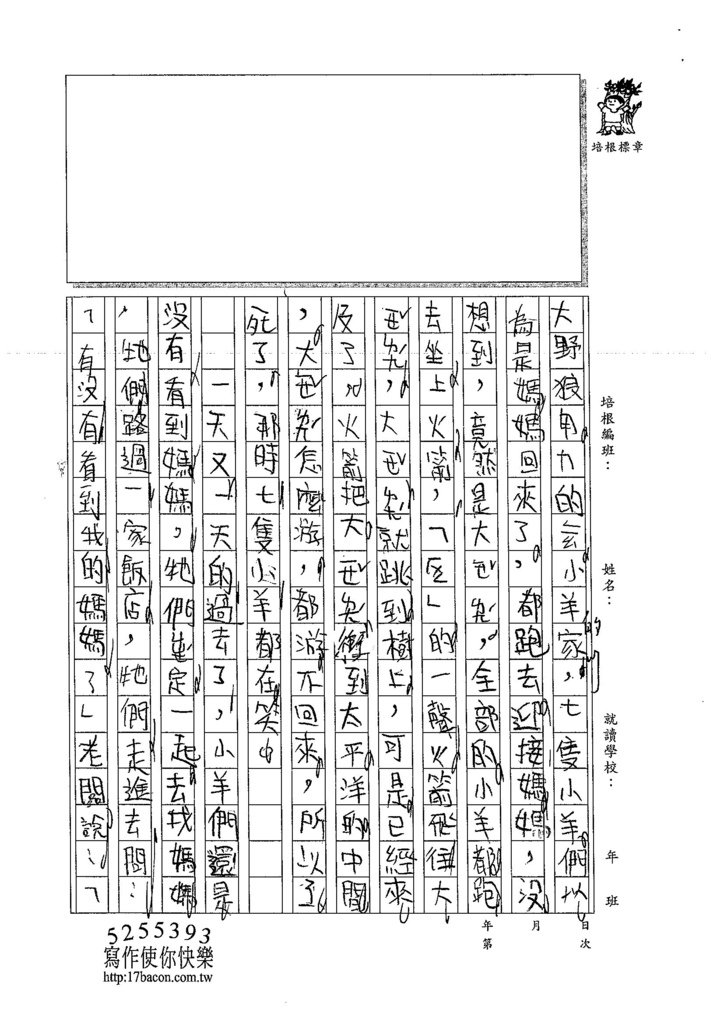 培根標章
培根編班：
姓名：
就讀學校：
年 班
年 月 日
第 次
大野狼用力的去小羊家，七隻小羊們以
的
為是媽媽回來了，都跑去迎接媽媽，沒
想到，竟然是大巴兔，全部的小羊都跑
去坐上火箭，「ㄛ」的一聲火箭飛往大
巴兔，大巴兔就跳到樹上，可是已經來
及了，火箭把大巴兔衝到太平洋的中間
，大巴兔怎麼游，都游不回來，所以了
死了，那時七隻小羊都在笑。
一天又一天的過去了，小羊們還是
沒有看到媽媽，牠們決定一起去找媽媽
，牠們路過一家飯店，牠們走進去問：
「有沒有看到我的媽媽了」老闆說：「
5255393
寫作使你快樂
http:17bacon.com.tw